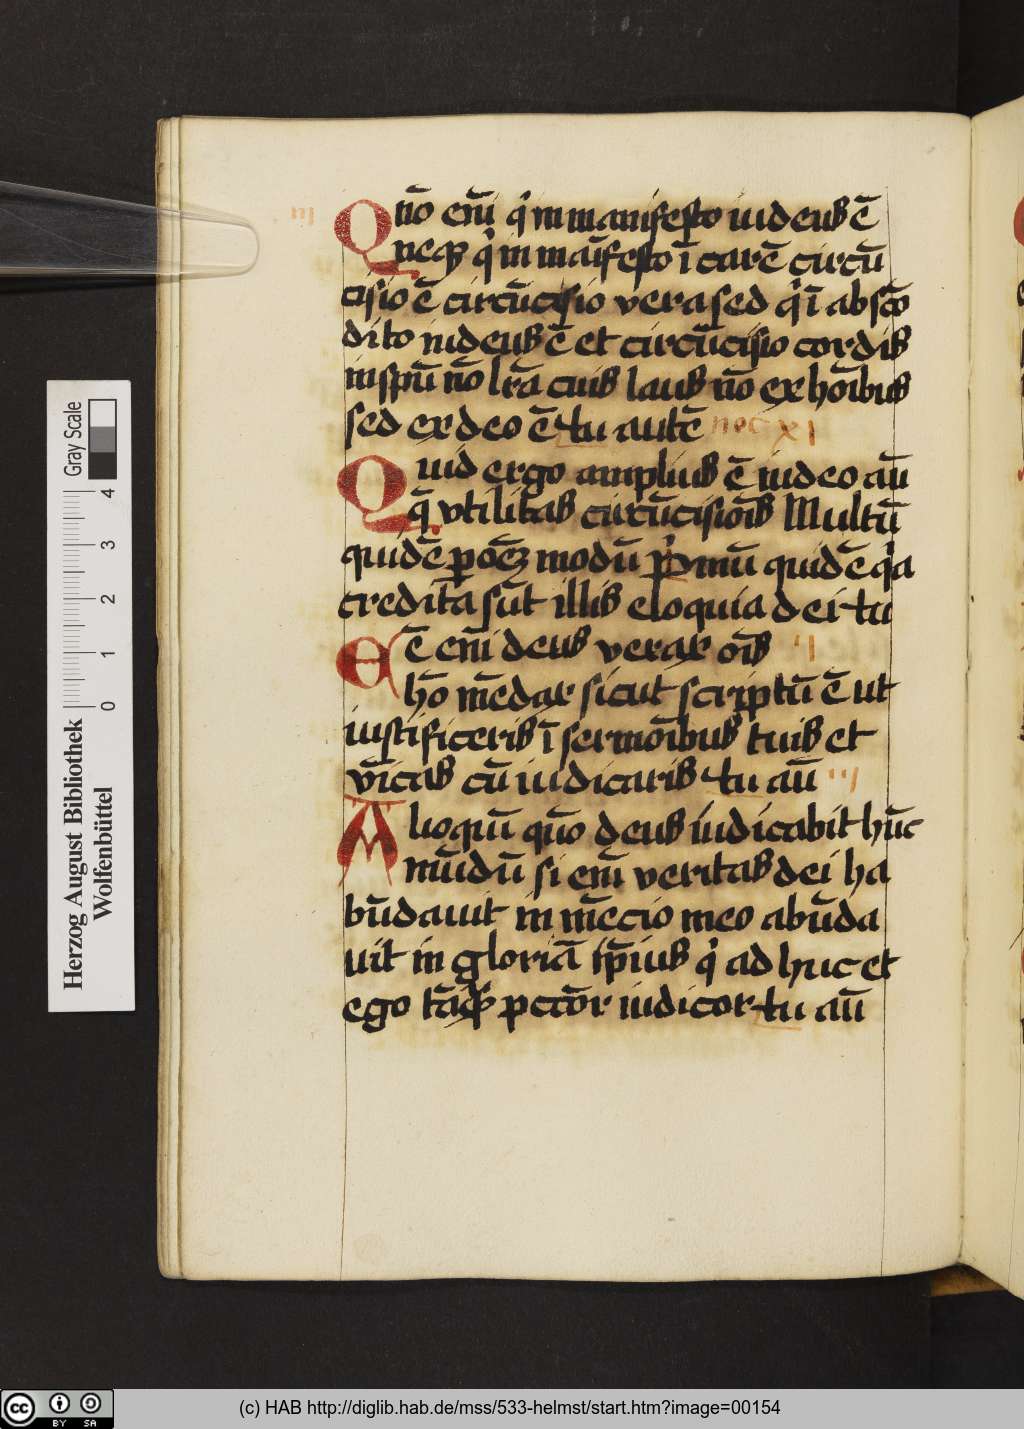 Qnō em̄ q̓ in manifesto iudeus ē
neqꝫ q̓ in māifesto ī carē circū
cisio ē circūcisio vera sed q̓ ī absco͞
dito iudeus ē et circūcisio cordis
in spū nō lrā cuiꝰ laus nō ex hoībus
sed ex deo ē tu autē noc XI
Quid ergo ampliꝰ ē iudeo aū
q̄ vtilitas circūcisiōis Multū
quidē ꝑ oēꝫ modū P̓mū quidē q̓a
credita sūt illis eloquia dei tu
Eē em̄ deus verax oīs II
hō mēdax sicut scriptū ē ut
iustificeris ī sermōibus tuis et
vīcas cū iudicaris tu aū III
Alioquī quō deus iudicabit hūc
mūdū si em̄ veritas dei ha
būdauit in mēcio meo abūda
uit in gloriā ip̄ius q̓ ad huc et
ego tāqꝫ pctōr iudicor tu aū
III
Herzog August Bibliothek
Wolfenbüttel
Gray Scale
0 1 2 3 4
BY SA
(c) HAB http://diglib.hab.de/mss/533-helmst/start.htm?image=00154